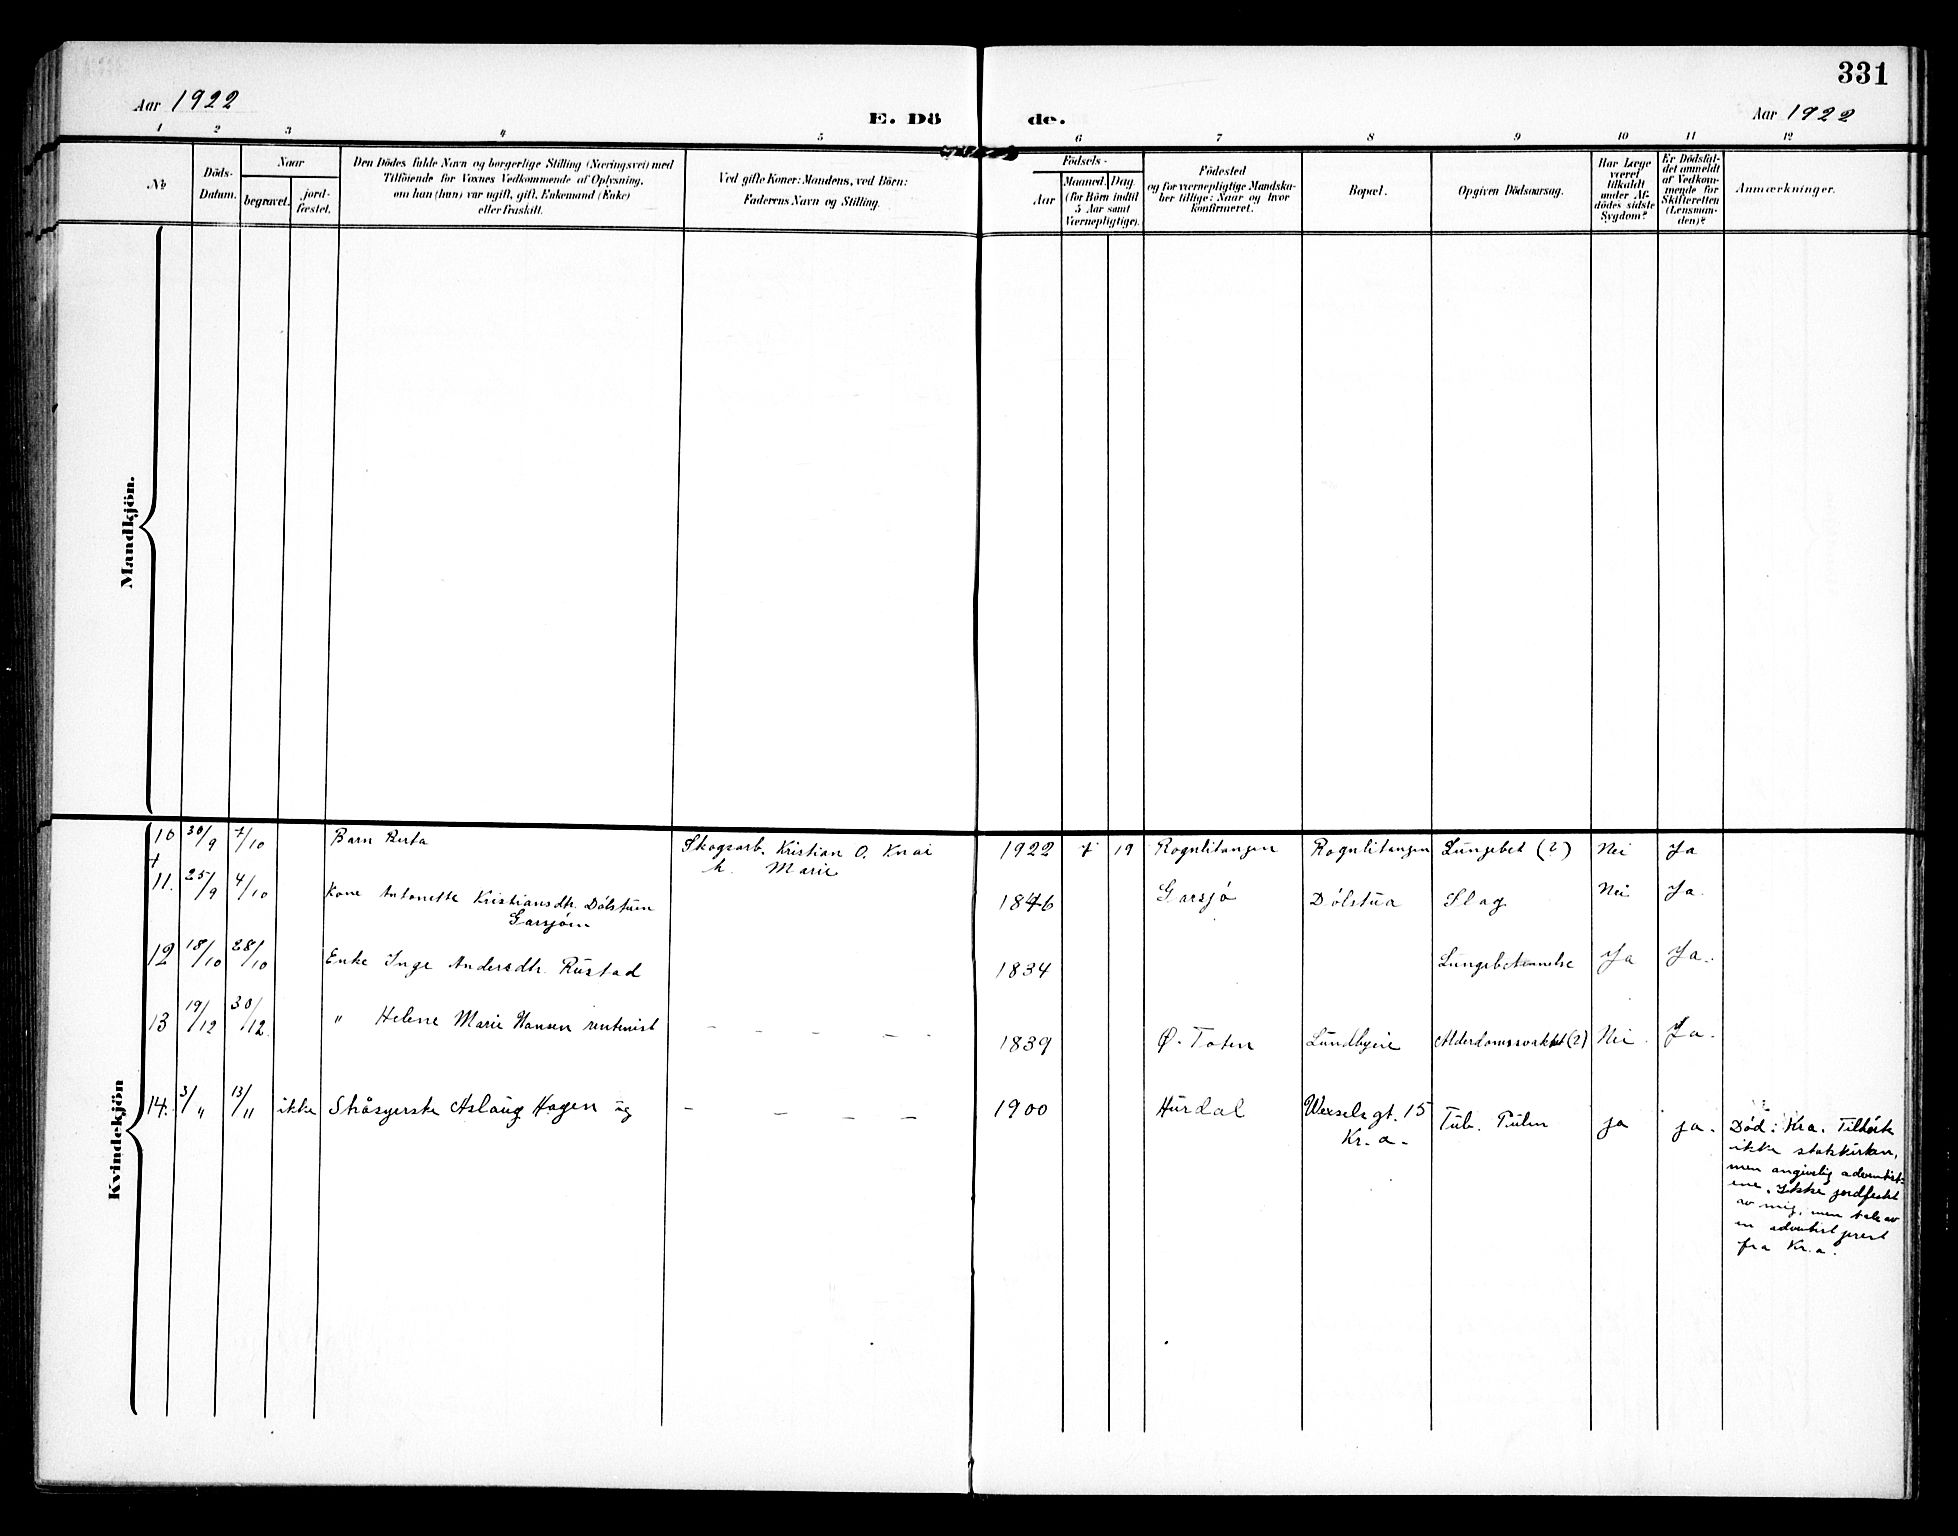 331
Aar 1922
E. Dö de.
Aar 1922
1 2 3 4 5 6 7 8 9 10 11 12
No
Döds-
Datum.
Naar
begravet.
jord-
fæstet.
Den Dödes fulde Navn og borgerlige Stilling (Næringsvei) med
Tilföiende for Voxnes Vedkommende af Oplysning,
om han (hun) var ugift, gift, Enkemand (Enke)
eller fraskilt.
Ved gifte Koner: Mandens, ved Börn:
Faderens Navn og Stilling.
Födsels-
Aar
Maaned. Dag
(for Börn indtil
5 Aar samt
Værnepligtige).
Födested
og for værnepligtige Mandska-
ber tillige: Naar og hvor
konfirmeret.
Bopæl.
Opgiven Dödsaarsag.
Har Læge
været
tilkaldt
under Af-
dödes sidste
Sygdom?
Er Dödsfal-
det anmeldt
af Vedkom-
mende for
Skifteretten
(Lensman-
den)?
Anmærkninger.
Mandkjön.
Kvindekjön
10 30/9 7/10 Barn Berta Skogsarb. Kristian O. Knai 1922 7 19 Rognlitangen Rognlitangen Lungebet (?) Nei Ja
h. Marie
11. 25/9 4/10 Kone Antonette Kristiansdtr. Dölstuen 1846 Garsjö Dölstua Slag Nei Ja.
Garsjöen
12 18/10 28/10 Enke Inge Andersdtr. Rustad 1834 Lungebetennelse Ja Ja.
13 19/12 30/12. " Helene Marie Hansen rentenist – – – – – 1839 Ø. Toten Lundbyeie Alderdomssvakhet (?) Nei. Ja.
14. 3/" 13/11 ikke Stråsyerske Aslaug Hagen ug – – – – 1900 Hurdal Wexelsgt. 15 Tub. Pulm ja ja.
Kr.a.
Død: Kra. Tilhørte
ikke statskirken,
men angivelig adventist-
ene. Ikke jordfestet
av mig, men tale av
en adventistprest
fra Kr.a.